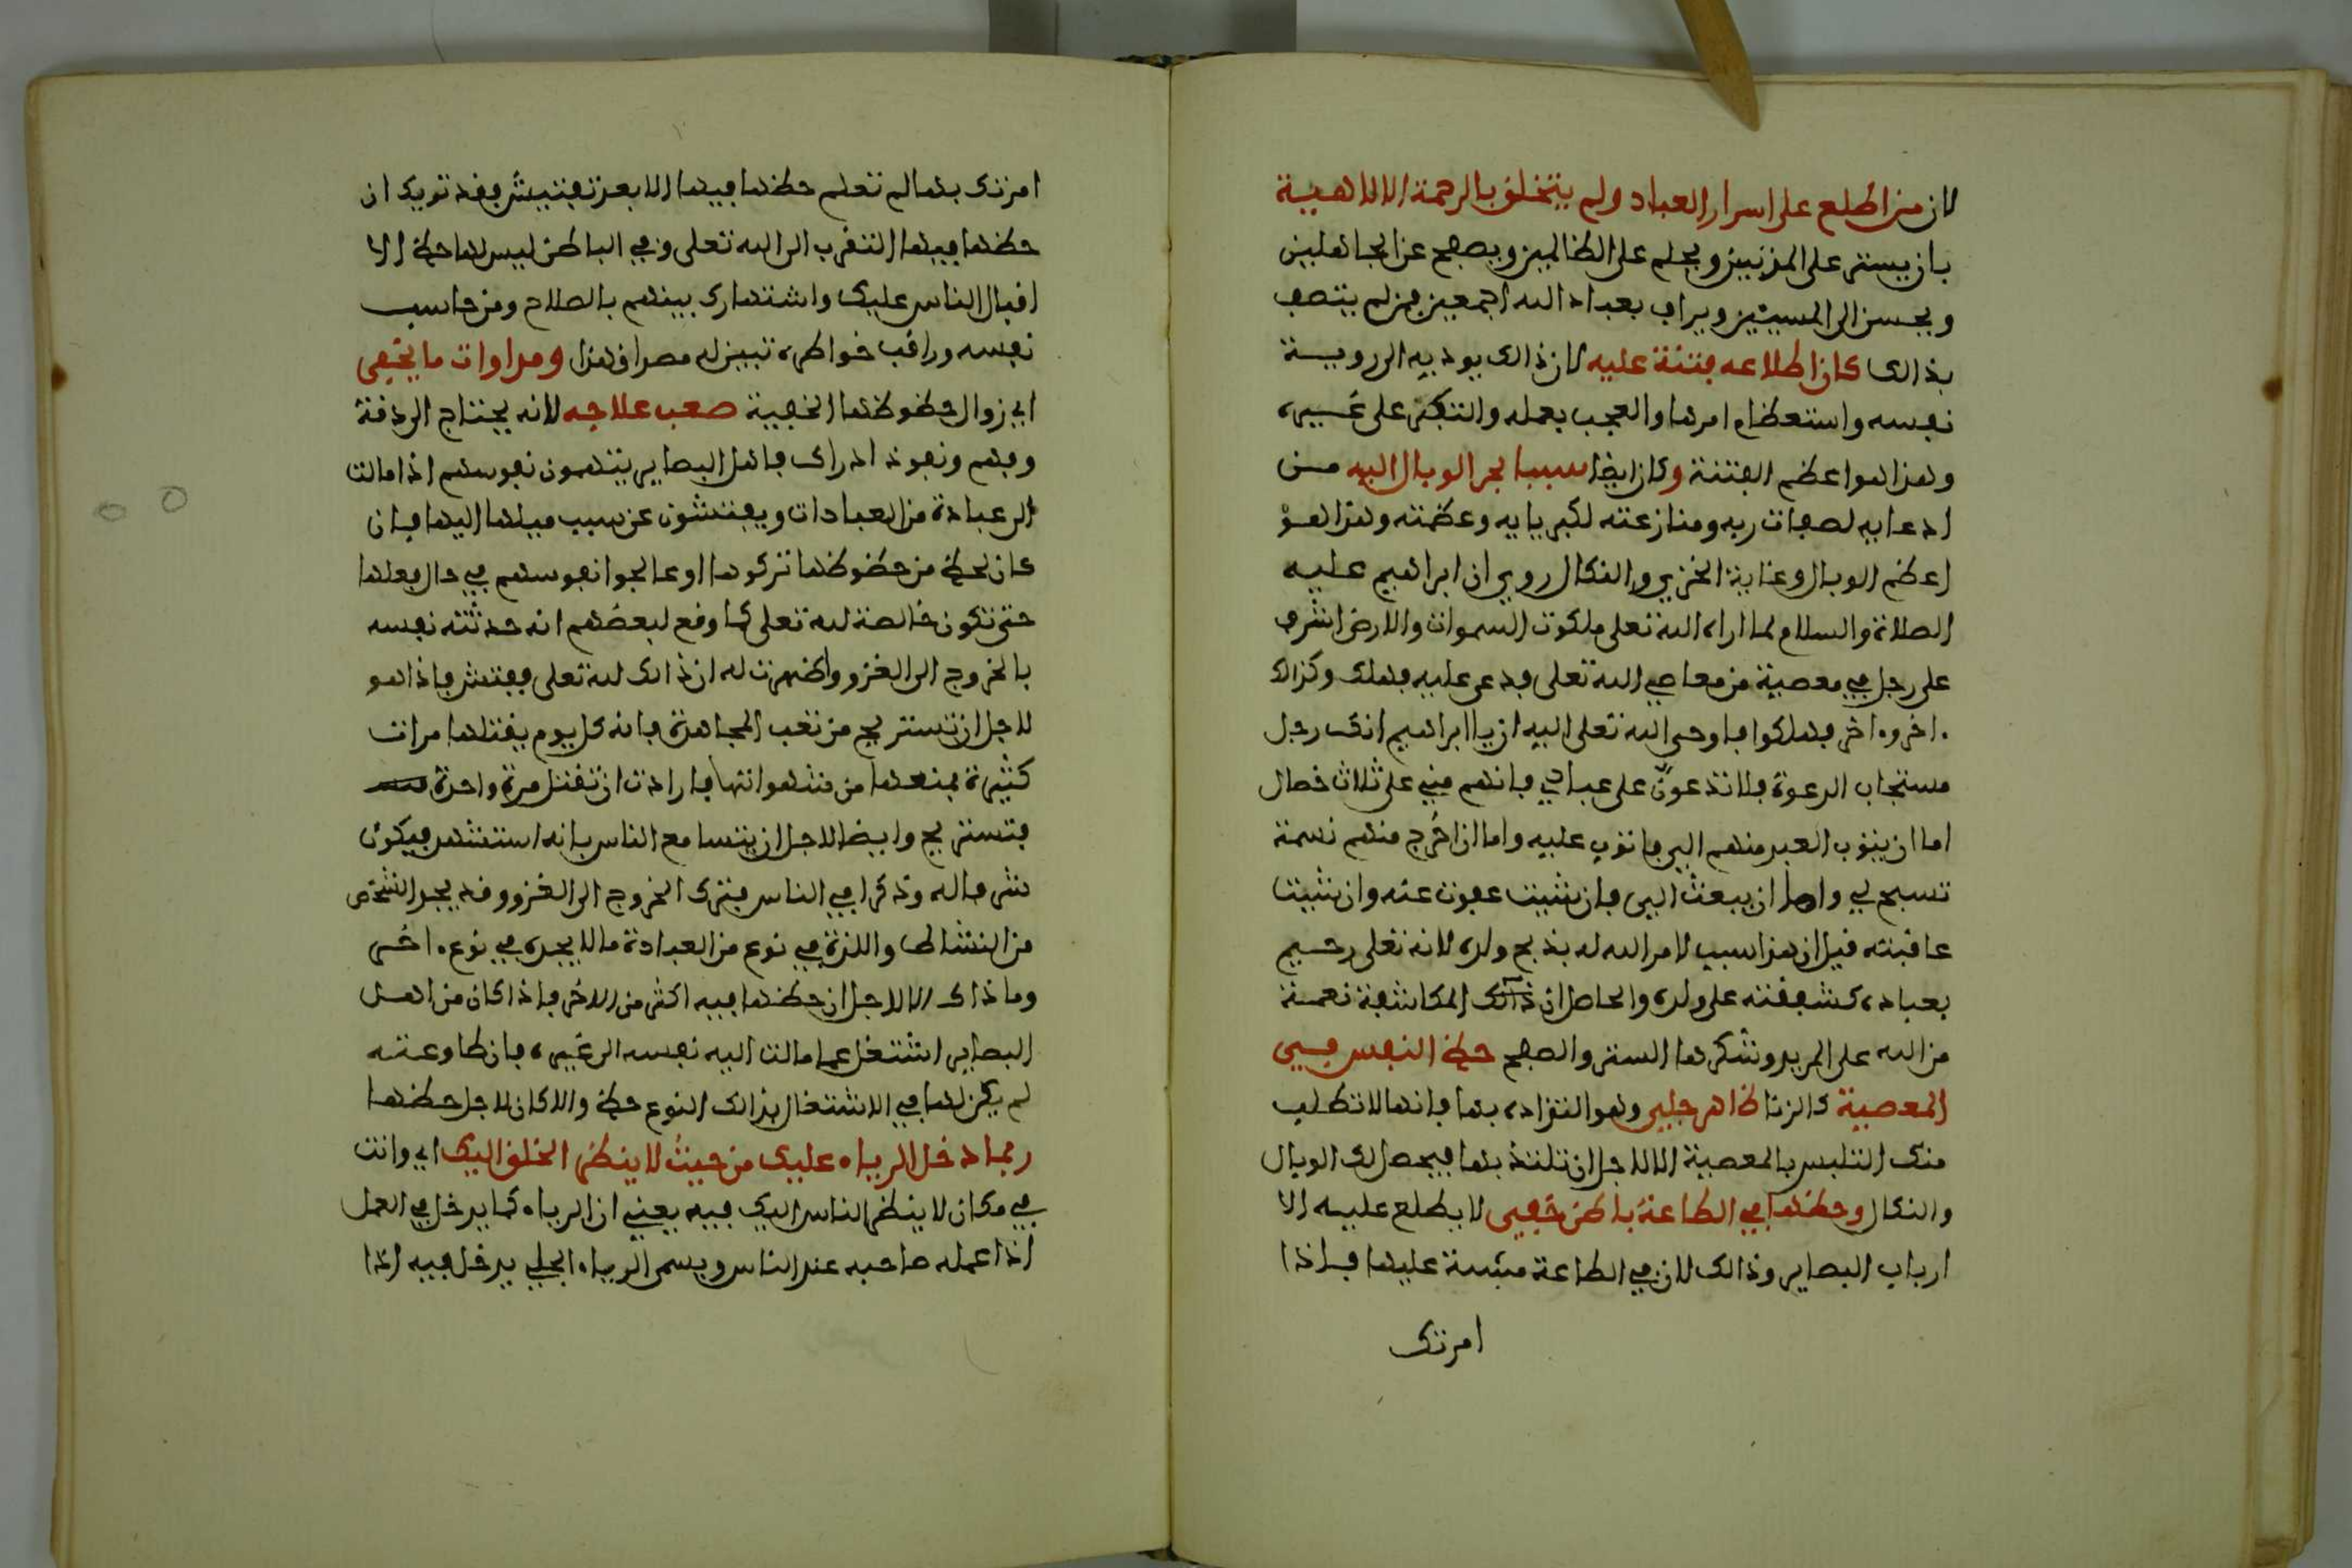 لان من اطلع على اسرار العباد ولم يتخلق بالرحمة الالاهية
بان يستر على المذنبين ويحلم على الظالمين ويصفح عن الجاهلين
ويحسن الى المسيئين ويراف بعباد الله اجمعين فمن لم يتصف
بذالك كان اطلاعه فتنة عليه لان ذالك يوديه الى روية
نفسه واستعظام امرها والعجب بعمله والتكبر على غيره
وهذا هو اعظم الفتنة وكان ايضا سببا لجر الوبال اليه من
ادعايه لصفات ربه ومنازعته لكبريايه وعظمته وهذا هو
اعظم الوبال وغاية الخزي والنكال روي ان ابراهيم عليه
الصلاة والسلام لما اراه الله تعلى ملكوت السموات والارض اشرف
على رجل في معصية من معاصي الله تعلى فدعى عليه فهلك وكذالك
ءاخر وءاخر فهلكوا فاوحى الله تعلى اليه ان يا ابراهيم انك رجل
مستجاب الدعوة فلا تدعون على عبادي فانهم مني على ثلاث خصال
اما ان يتوب العبد منهم الي فاتوب عليه واما ان اخرج منهم نسمة
تسبح لي واما ان يبعث الي فان شيت عفوت عنه وان شيت
عاقبته فيل ان هذا سبب لامر الله له بذبح ولده لانه تعلى رحيم
بعباده كشفقته على ولده والحاصل ان ذالك المكاشفة نعمة
من الله على المريد وشكرها الستر والصفح حظ النفس في
المعصية كالزنا ظاهر جلي وهو التذاده بها فانها لا تطلب
منك التلبس بالمعصية الا لاجل ان تلتذ بها فيحصل لك الوبال
والنكال وحظها في الطاعة باطن خفي لا يطلع عليه الا
ارباب البصاير وذالك لان في الطاعة مشقة عليها فاذا
امرتك
امرتك بها لم تعلم حظها فيها الا بعد تفتيش فقد تريك ان
حظها فيها التقرب الى الله تعلى وفي الباطن ليس لها حظ الا
اقبال الناس عليك واشتهارك بينهم بالصلاح ومن حاسب
نفسه وراقب خواطره تبين له مصداق هذا ومداوات ما يخفى
اي زوال حظوظها الخفية صعب علاجه لانه يحتاج الى دقة
وفهم ونفوذ ادراك فاهل البصاير يتهمون نفوسهم اذا مالت
الى عبادة من العبادات ويفتشون عن سبب ميلها اليها فان
كان لحظ من حظوظها تركوها او عالجوا نفوسهم في حال فعلها
حتى تكون خالصة لله تعلى كما وقع لبعضهم انه حدثته نفسه
بالخروج الى الغزو واظهرت له ان ذالك لله تعلى ففتش فاذا هو
لاجل ان تستريح من تعب المجاهدة فانه كل يوم يقتلها مرات
كثيرة بمنعها من شهواتها فارادت ان تقتل مرة واحدة
فتستريح وايضا لاجل ان يتسامع الناس بانه استشهد فيكون
شرفا له وذكرا في الناس فترك الخروج الى الغزو وقد يجد الشخص
من النشاط واللذة في نوع من العبادة ما لا يجده في نوع ءاخر
وما ذاك الا لاجل ان حظها فيه اكثر من الاخر فاذا كان من اهل
البصاير اشتغل عما مالت اليه نفسه الى غيره فان طاوعته
لم يكن لها في الاشتغال بذالك النوع حظ والا كان لاجل حظها
ربما دخل الرياء عليك من حيث لا ينظر الخلق اليك اي وانت
في مكان لا ينظر الناس اليك فيه يعني ان الرياء كما يدخل في العمل
اذا عمله صاحبه عند الناس ويسمى الرياء الجلي يدخل فيه اذا